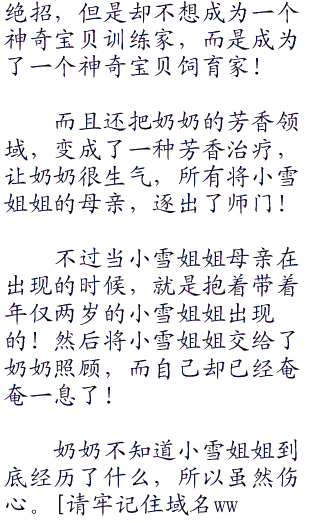 绝招，但是却不想成为一个
神奇宝贝训练家，而是成为
了一个神奇宝贝饲育家！
而且还把奶奶的芳香领
域，变成了一种芳香治疗，
让奶奶很生气，所有将小雪
姐姐的母亲，逐出了师门！
不过当小雪姐姐母亲在
出现的时候，就是抱着带着
年仅两岁的小雪姐姐出现
的！然后将小雪姐姐交给了
奶奶照顾，而自己却已经奄
奄一息了！
奶奶不知道小雪姐姐到
底经历了什么，所以虽然伤
心。[请牢记住域名ww